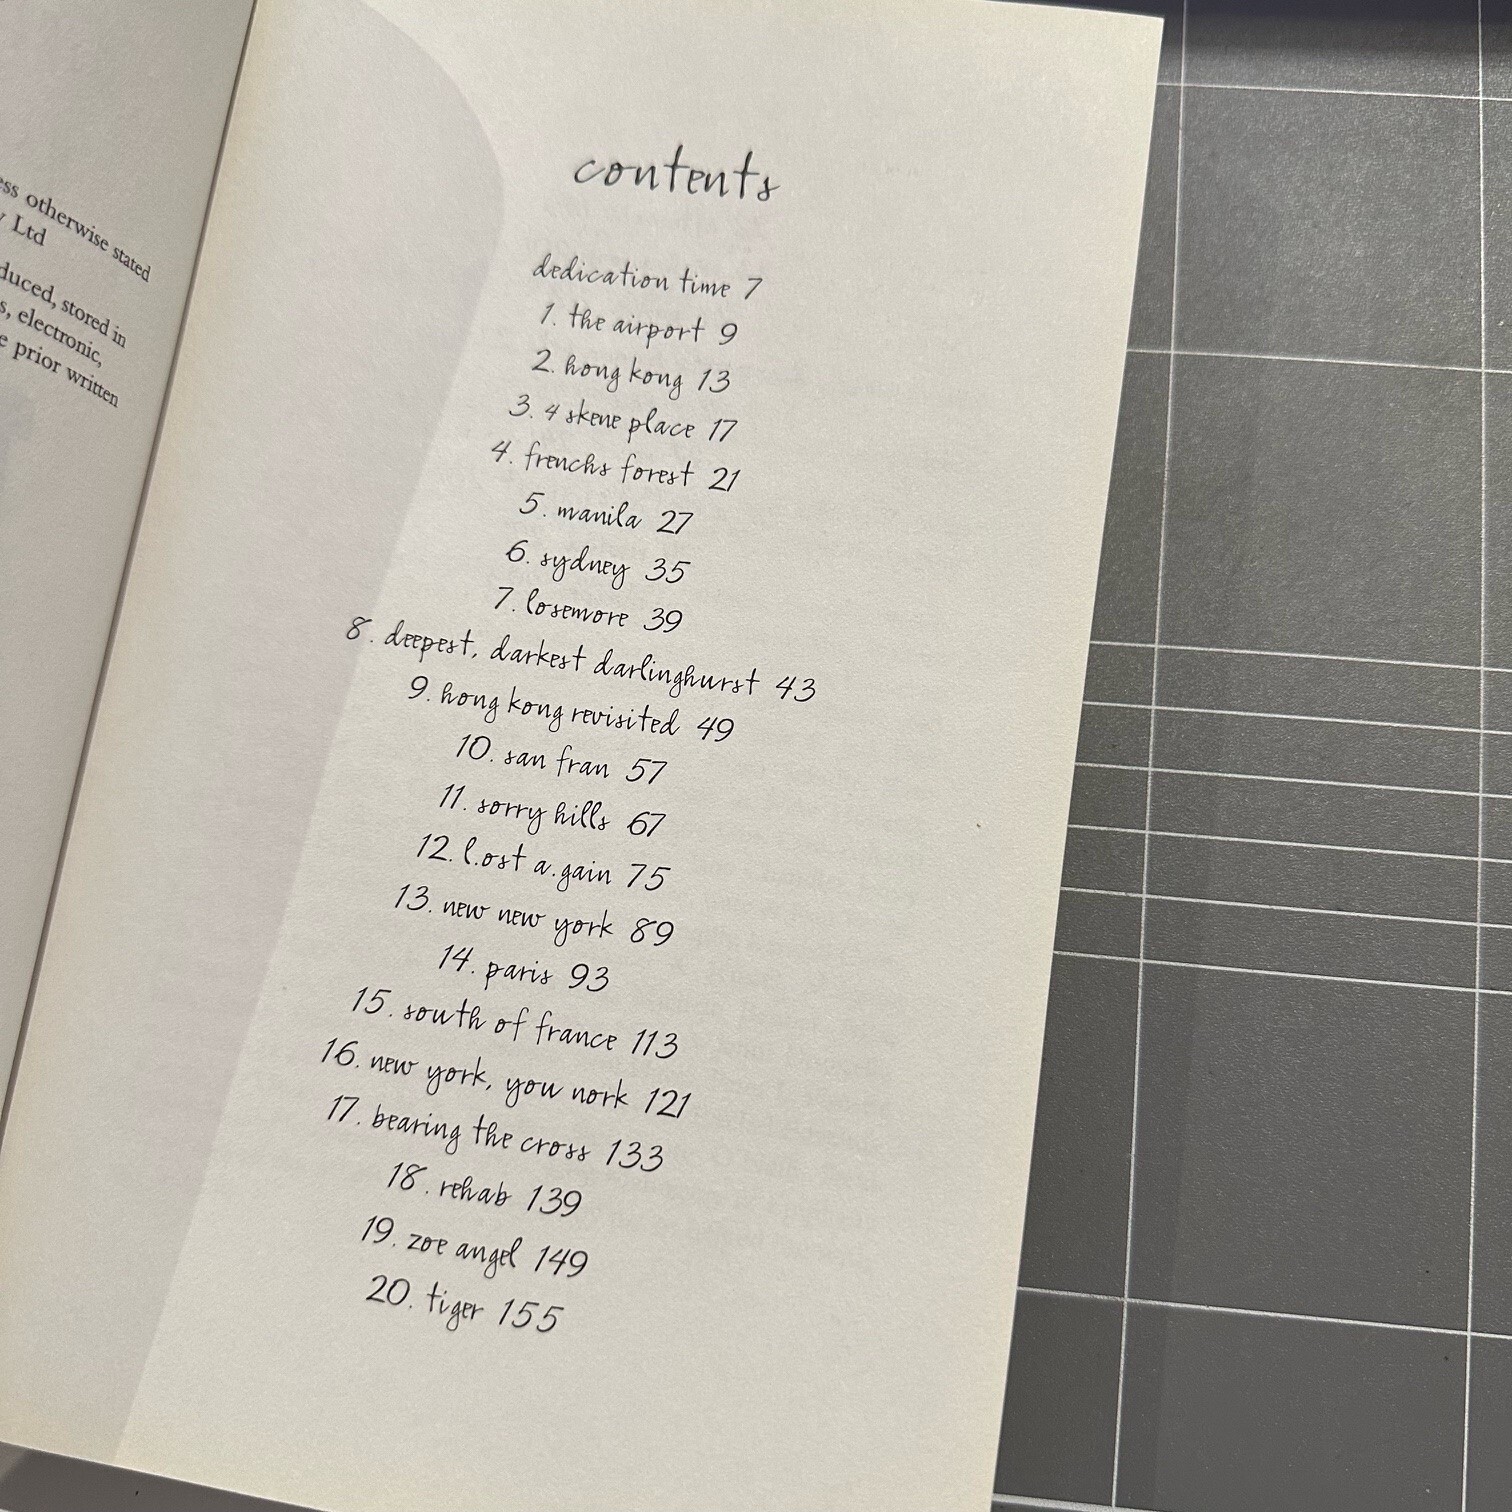 ess otherwise stated
y Ltd
duced, stored in
s, electronic,
e prior written
contents
dedication time 7
1. the airport 9
2. hong kong 13
3. 4 skene place 17
4. frenchs forest 21
5. manila 27
6. sydney 35
7. losemore 39
8. deepest, darkest darlinghurst 43
9. hong kong revisited 49
10. san fran 57
11. sorry hills 67
12. l.ost a.gain 75
13. new new york 89
14. paris 93
15. south of france 113
16. new york, you nork 121
17. bearing the cross 133
18. rehab 139
19. zoe angel 149
20. tiger 155